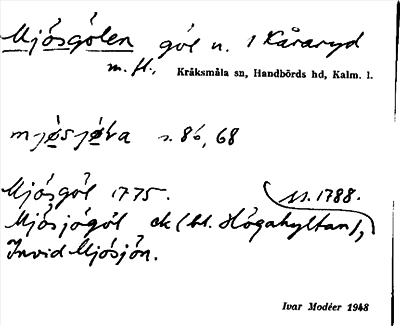 Mjósgölen göl n. 1 Kåraryd
m. fl., Kråksmåla sn, Handbörds hd, Kalm. l.
mjøsjøla s. 86, 68
Mjósgöl 1775. 1788.
Mjósjögöl ek (bl. Högahyltan),
Invid Mjósjön.
Ivar Modéer 1948